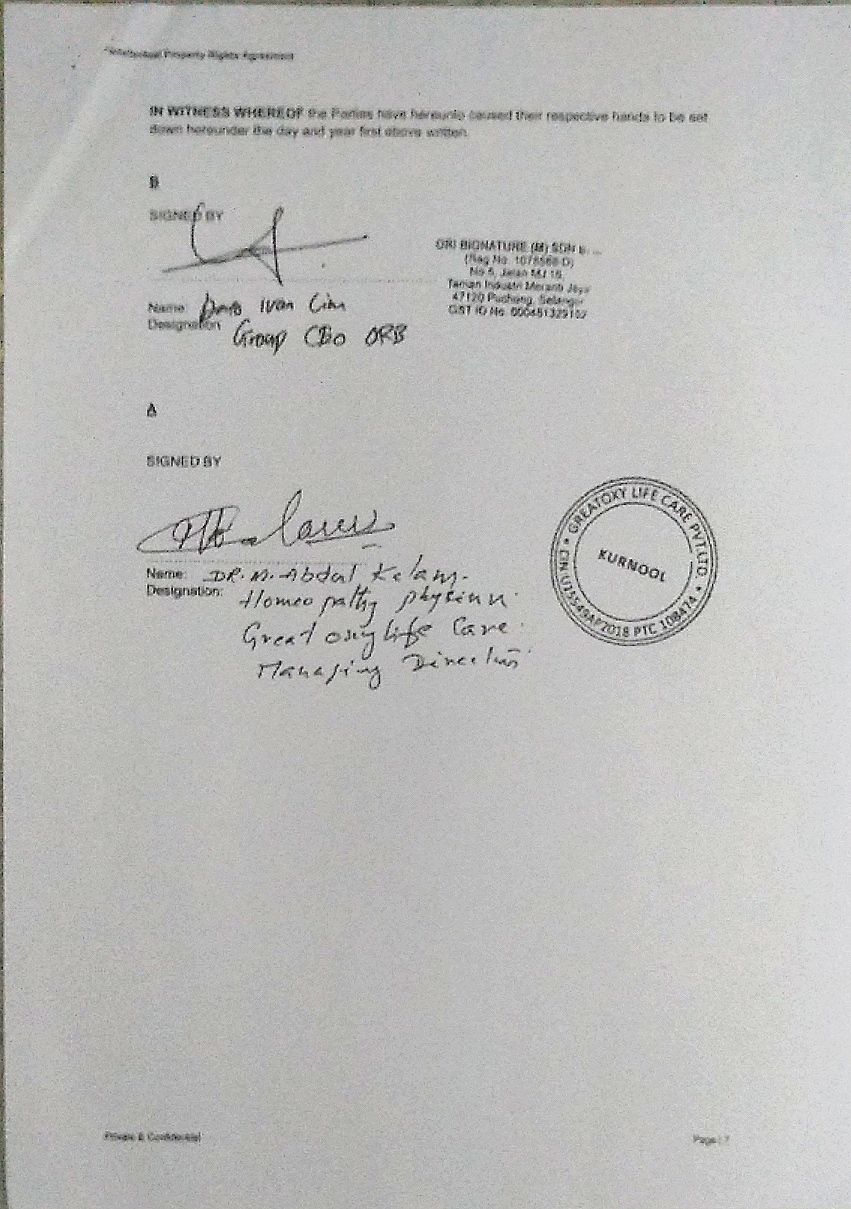 "Intellectual Property Rights Agreement
IN WITNESS WHEREOF the Parties have hereunto caused their respective hands to be set
down hereunder the day and year first above written.
B
SIGNED BY
ORI BIGNATURE (M) SDN B
(Reg No. 1078568-D)
No 5, Jalan MJ 16,
Taman Industri Meranti Jaya
47120 Puchong, Selangor
GST ID No. 000451329102
Name: Ivan Lim
Designation: Group CBO ORB
A
SIGNED BY
GREATOXY LIFE CARE PVT.LTD.
KURNOOL
CIN:U15549AP2018 PTC 108474
Name: DR. M. Abdul Kalam.
Designation: Homeopathy physian
Great oxy life Care
Managing Director
Private & Confidential
Page | 7